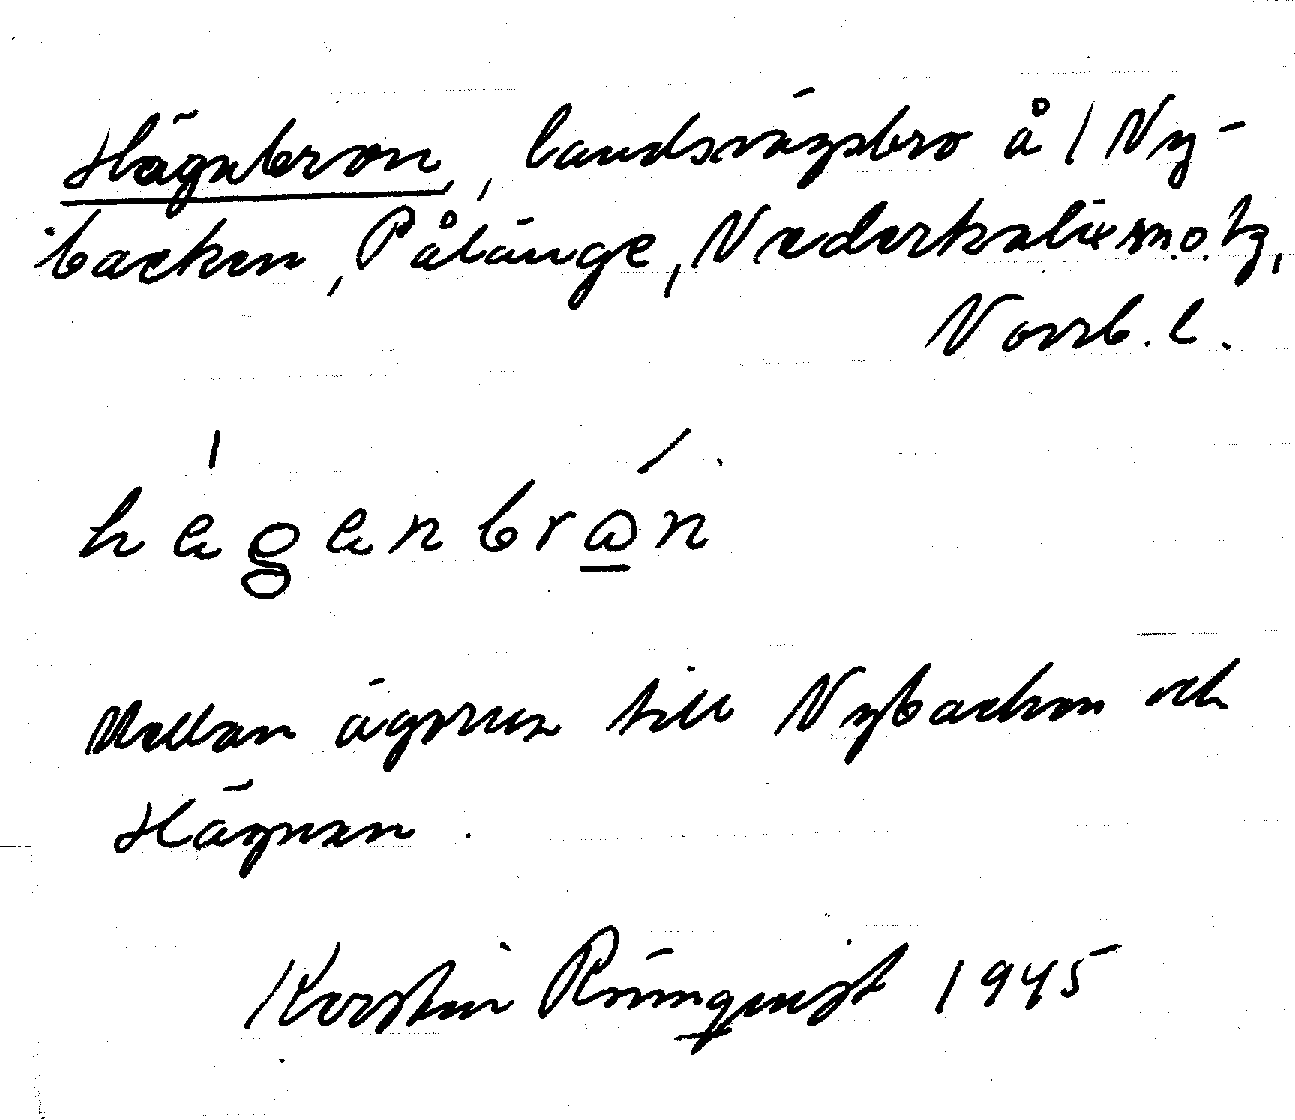 Hägnbron, landsvägsbro å 1 Ny-
backen, Pålänge, Nederkalix sn.o.tg,
Norrb. l.
hägänbrån
Mellan ägorna till Nybacken och
Hägnan.
Kerstin Rönnquist 1945